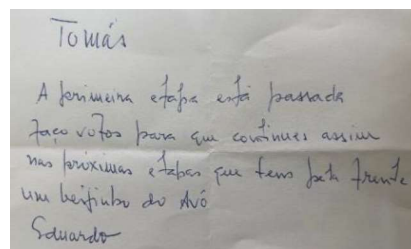 Tomás
A primeira etapa está passada
faço votos para que continues assim
nas próximas etapas que tens pela frente
um beijinho do Avô
Eduardo